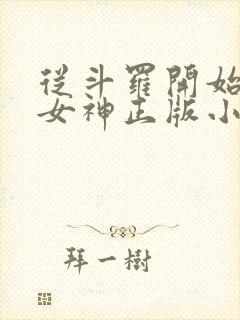 從斗羅開始
女神正版小
拜一樹